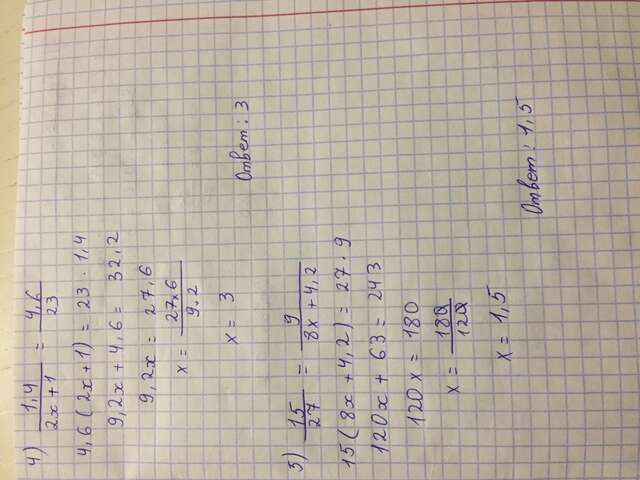 4) 1,4/(2x+1) = 4,6/23
4,6(2x+1) = 23 · 1,4
9,2x + 4,6 = 32,2
9,2x = 27,6
x = 27,6/9,2
x = 3
Ответ: 3
5) 15/27 = 9/(8x+4,2)
15(8x+4,2) = 27 · 9
120x + 63 = 243
120x = 180
x = 180/120
x = 1,5
Ответ: 1,5